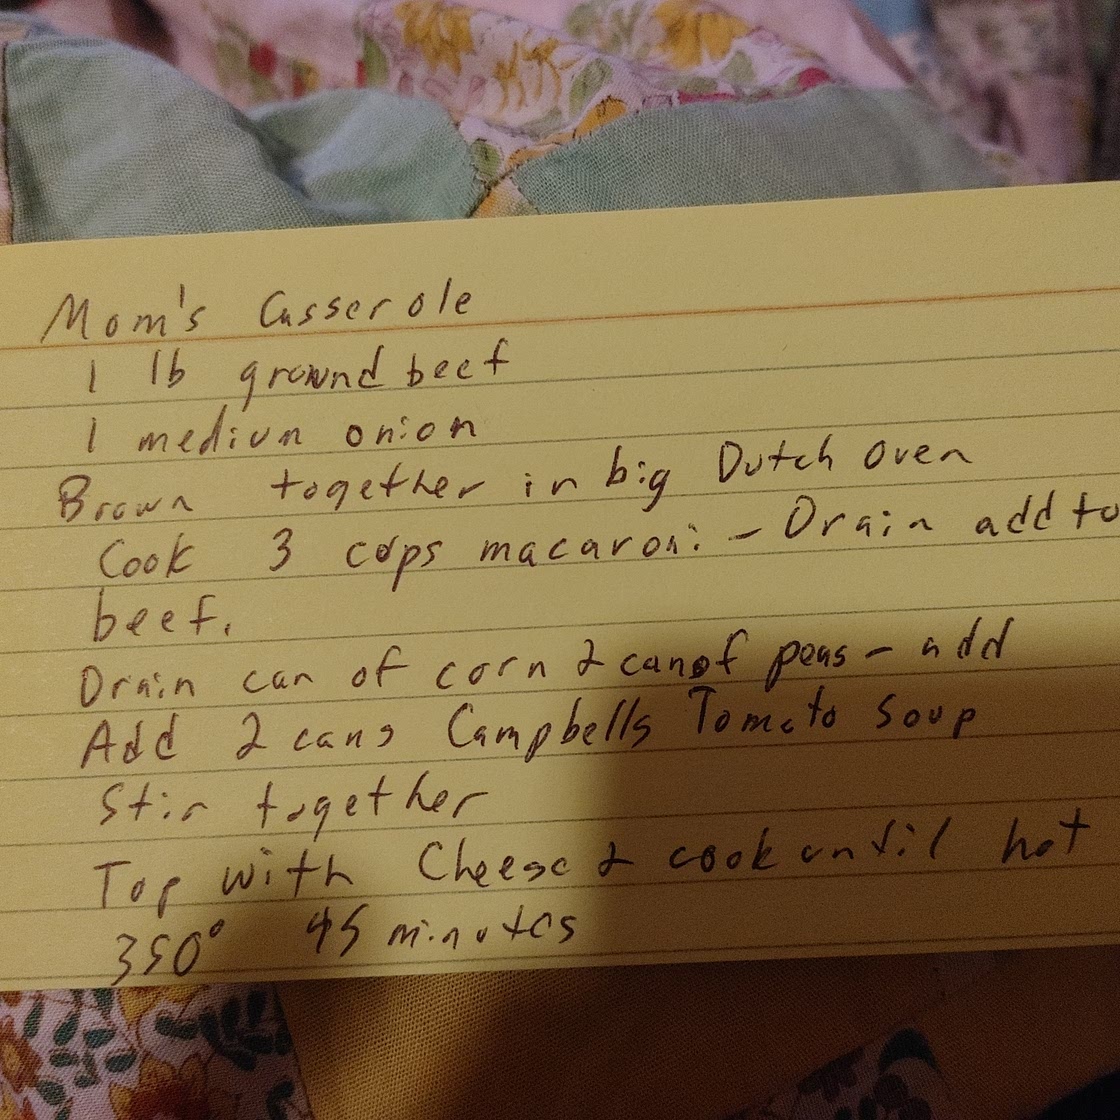 Mom's Casserole
1 lb ground beef
1 medium onion
Brown together in big Dutch oven
Cook 3 cups macaroni - Drain add to
beef.
Drain can of corn & can of peas - add
Add 2 cans Campbells Tomato Soup
Stir together
Top with Cheese & cook until hot
350° 45 minutes